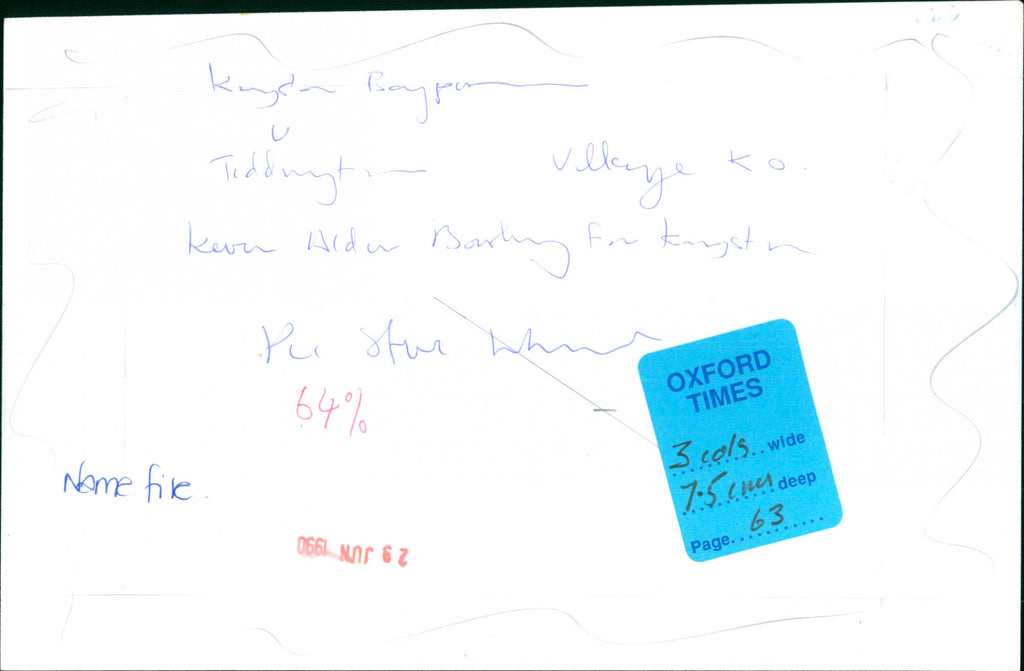 Kingston Bagpuize
v
Teddington Village K O.
Kevin Alder Bowling for Kingston
Pic Steve
64%
Name file.
OXFORD
TIMES
3 cols wide
7.5 cms deep
Page 63
29 JUN 1990